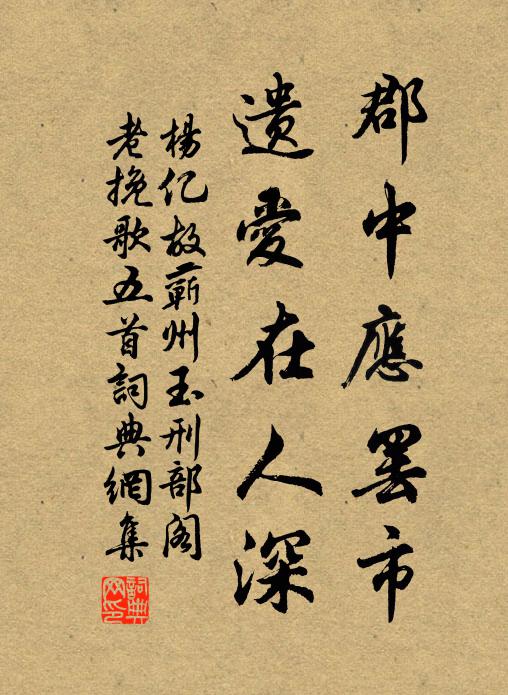 郡中應罷市
遺愛在人深
楊亿故蘄州玉刑部阁
老挽歌五首詞典網集